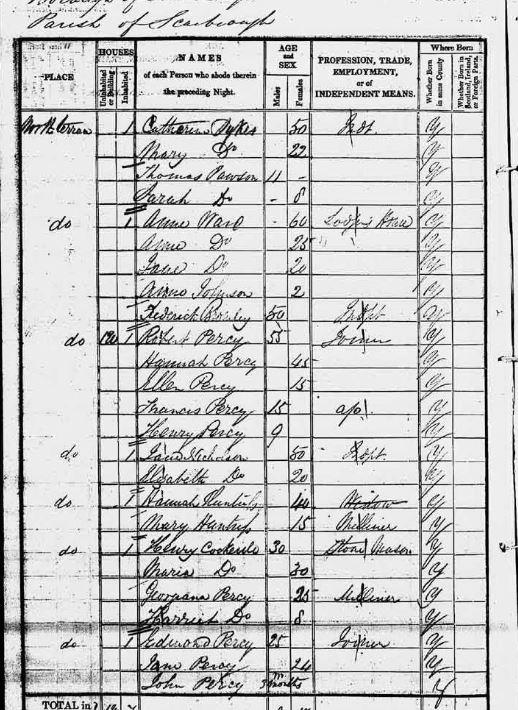 Parish of Scarbrough
PLACE
HOUSES
Uninhabited or Building
Inhabited
NAMES
of each Person who abode therein
the preceding Night.
AGE
and
SEX
Males
Females
PROFESSION, TRADE,
EMPLOYMENT,
or of
INDEPENDENT MEANS.
Where Born
Whether Born in same County
Whether Born in Scotland, Ireland, or Foreign Parts.
1 Catherine Dykes 50 Indt y
Mary Do 22 y
Thomas Pawson 11 - y
Sarah Do - 8 y
do 1 Anne Ward - 60 House y
Anne Do 25 y
Jane Do 20 y
Johnson 2 y
50
do 1 Robert Percy 55 Joiner y
Hannah Percy 45 y
Ellen Percy 15 y
Francis Percy 15 ap y
Henry Percy 9
do 1 Jane Nicholson 50 y
Elisabeth Do 20
do 1 Hannah 40 Widow y
Mary 15 Milliner y
do 1 Henry 30 Stone Mason y
Maria Do 30 y
Percy 25 Milliner y
Harriet Do 8 y
do 1 Edmond Percy 25 Joiner y
Jane Percy 24 y
John Percy 3 months y
TOTAL in